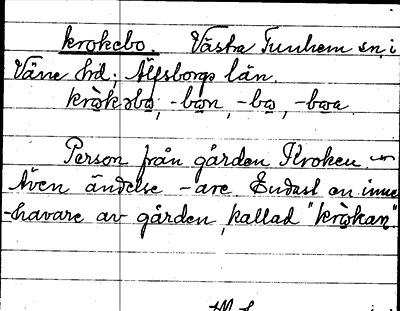 krokebo. Västra Tunhem sn, i
Väne hd; Älfsborgs län.
krò̱kəbo, -bon, -bo, -boa
Person från gården Kroken.
Även ändelse -are. Endast en inne
-havare av gården, kallad "krò̱kan".